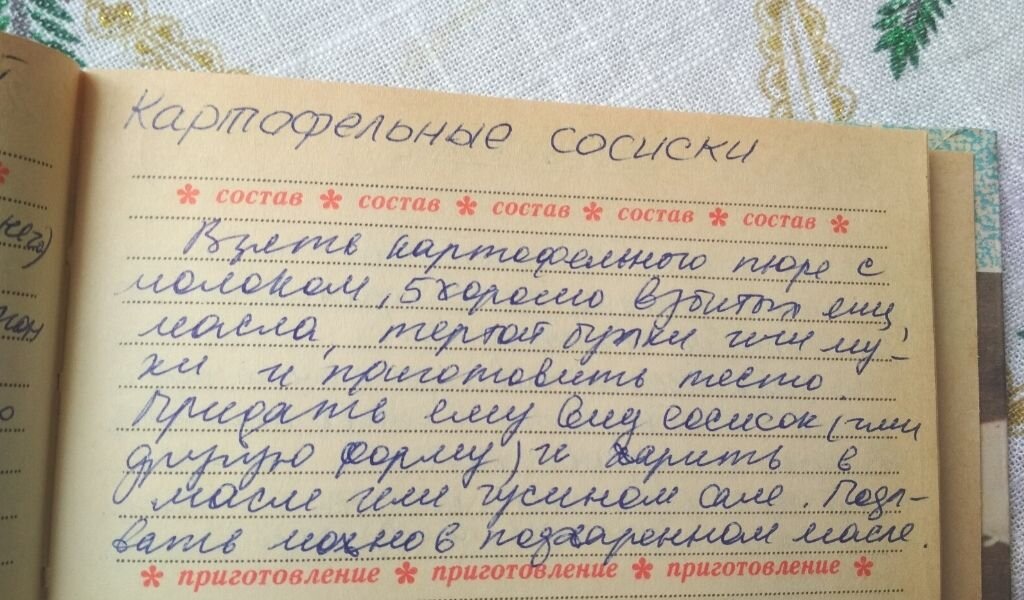 Картофельные сосиски
* состав * состав * состав * состав * состав *
Взять картофельного пюре с
молоком, 5 хорошо взбитых яиц,
масла, тертой булки или му-
ки и приготовить тесто
Придать ему вид сосисок (или
другую форму) и жарить в
масле или гусином сале. Пода-
вать можно в поджаренном масле.
* приготовление * приготовление * приготовление *